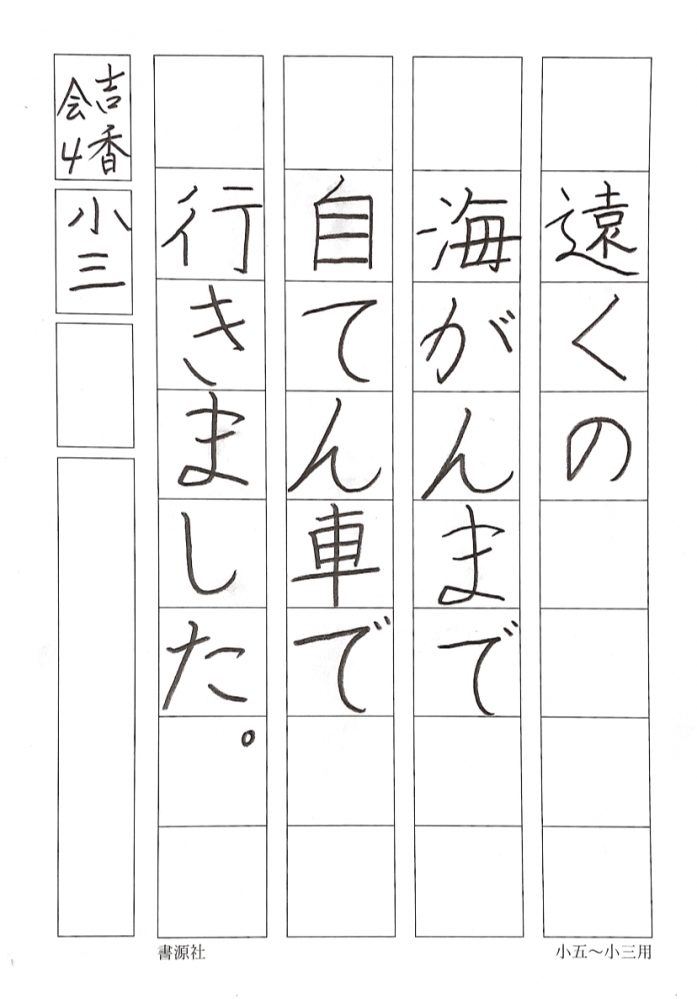 遠くの
海がんまで
自てん車で
行きました。
吉香
会4
小三
書源社
小五～小三用